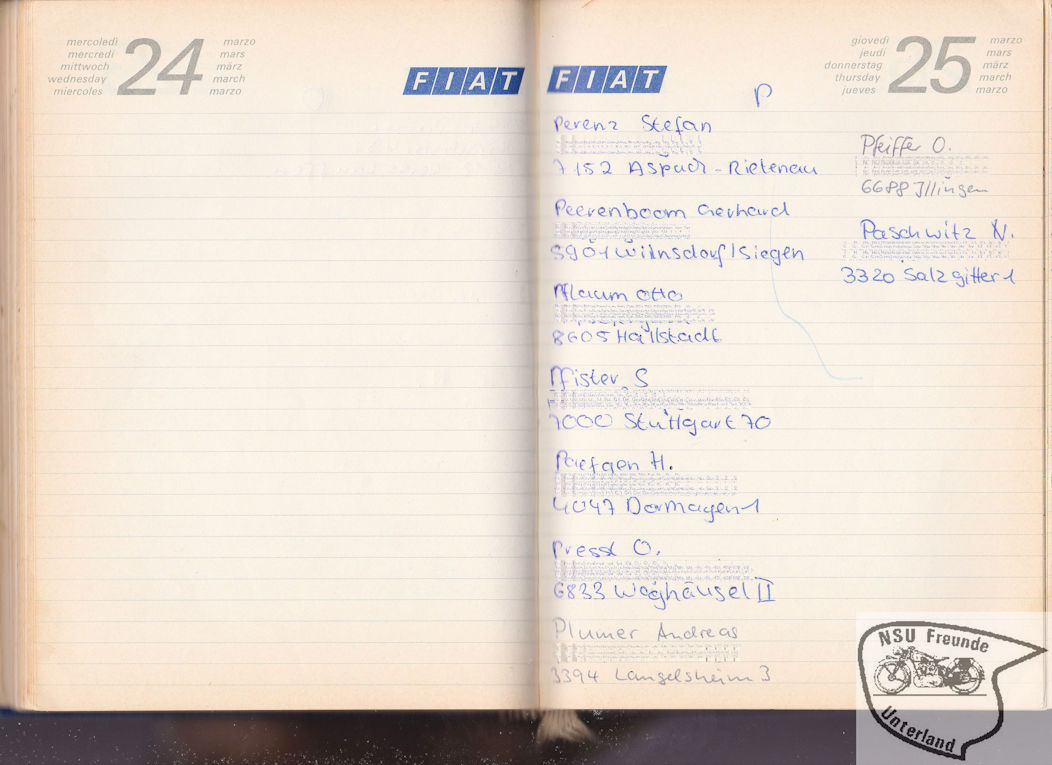 mercoledì
mercredi
mittwoch
wednesday
miercoles
24
marzo
mars
märz
march
marzo
FIAT
FIAT
giovedì
jeudi
donnerstag
thursday
jueves
25
marzo
mars
märz
march
marzo
P
Perenz Stefan
7152 Aspach-Rietenau
Peerenboom Gerhard
5901 Wilnsdorf/Siegen
Pflaum Otto
8605 Hallstadt
Pfister S
7000 Stuttgart 70
Paefgen H.
4047 Dormagen 1
Pressl O.
6833 Waghäusel II
Plumer Andreas
3394 Langelsheim 3
Pfeiffer O.
6688 Illingen
Paschwitz N.
3320 Salzgitter 1
NSU Freunde
Unterland